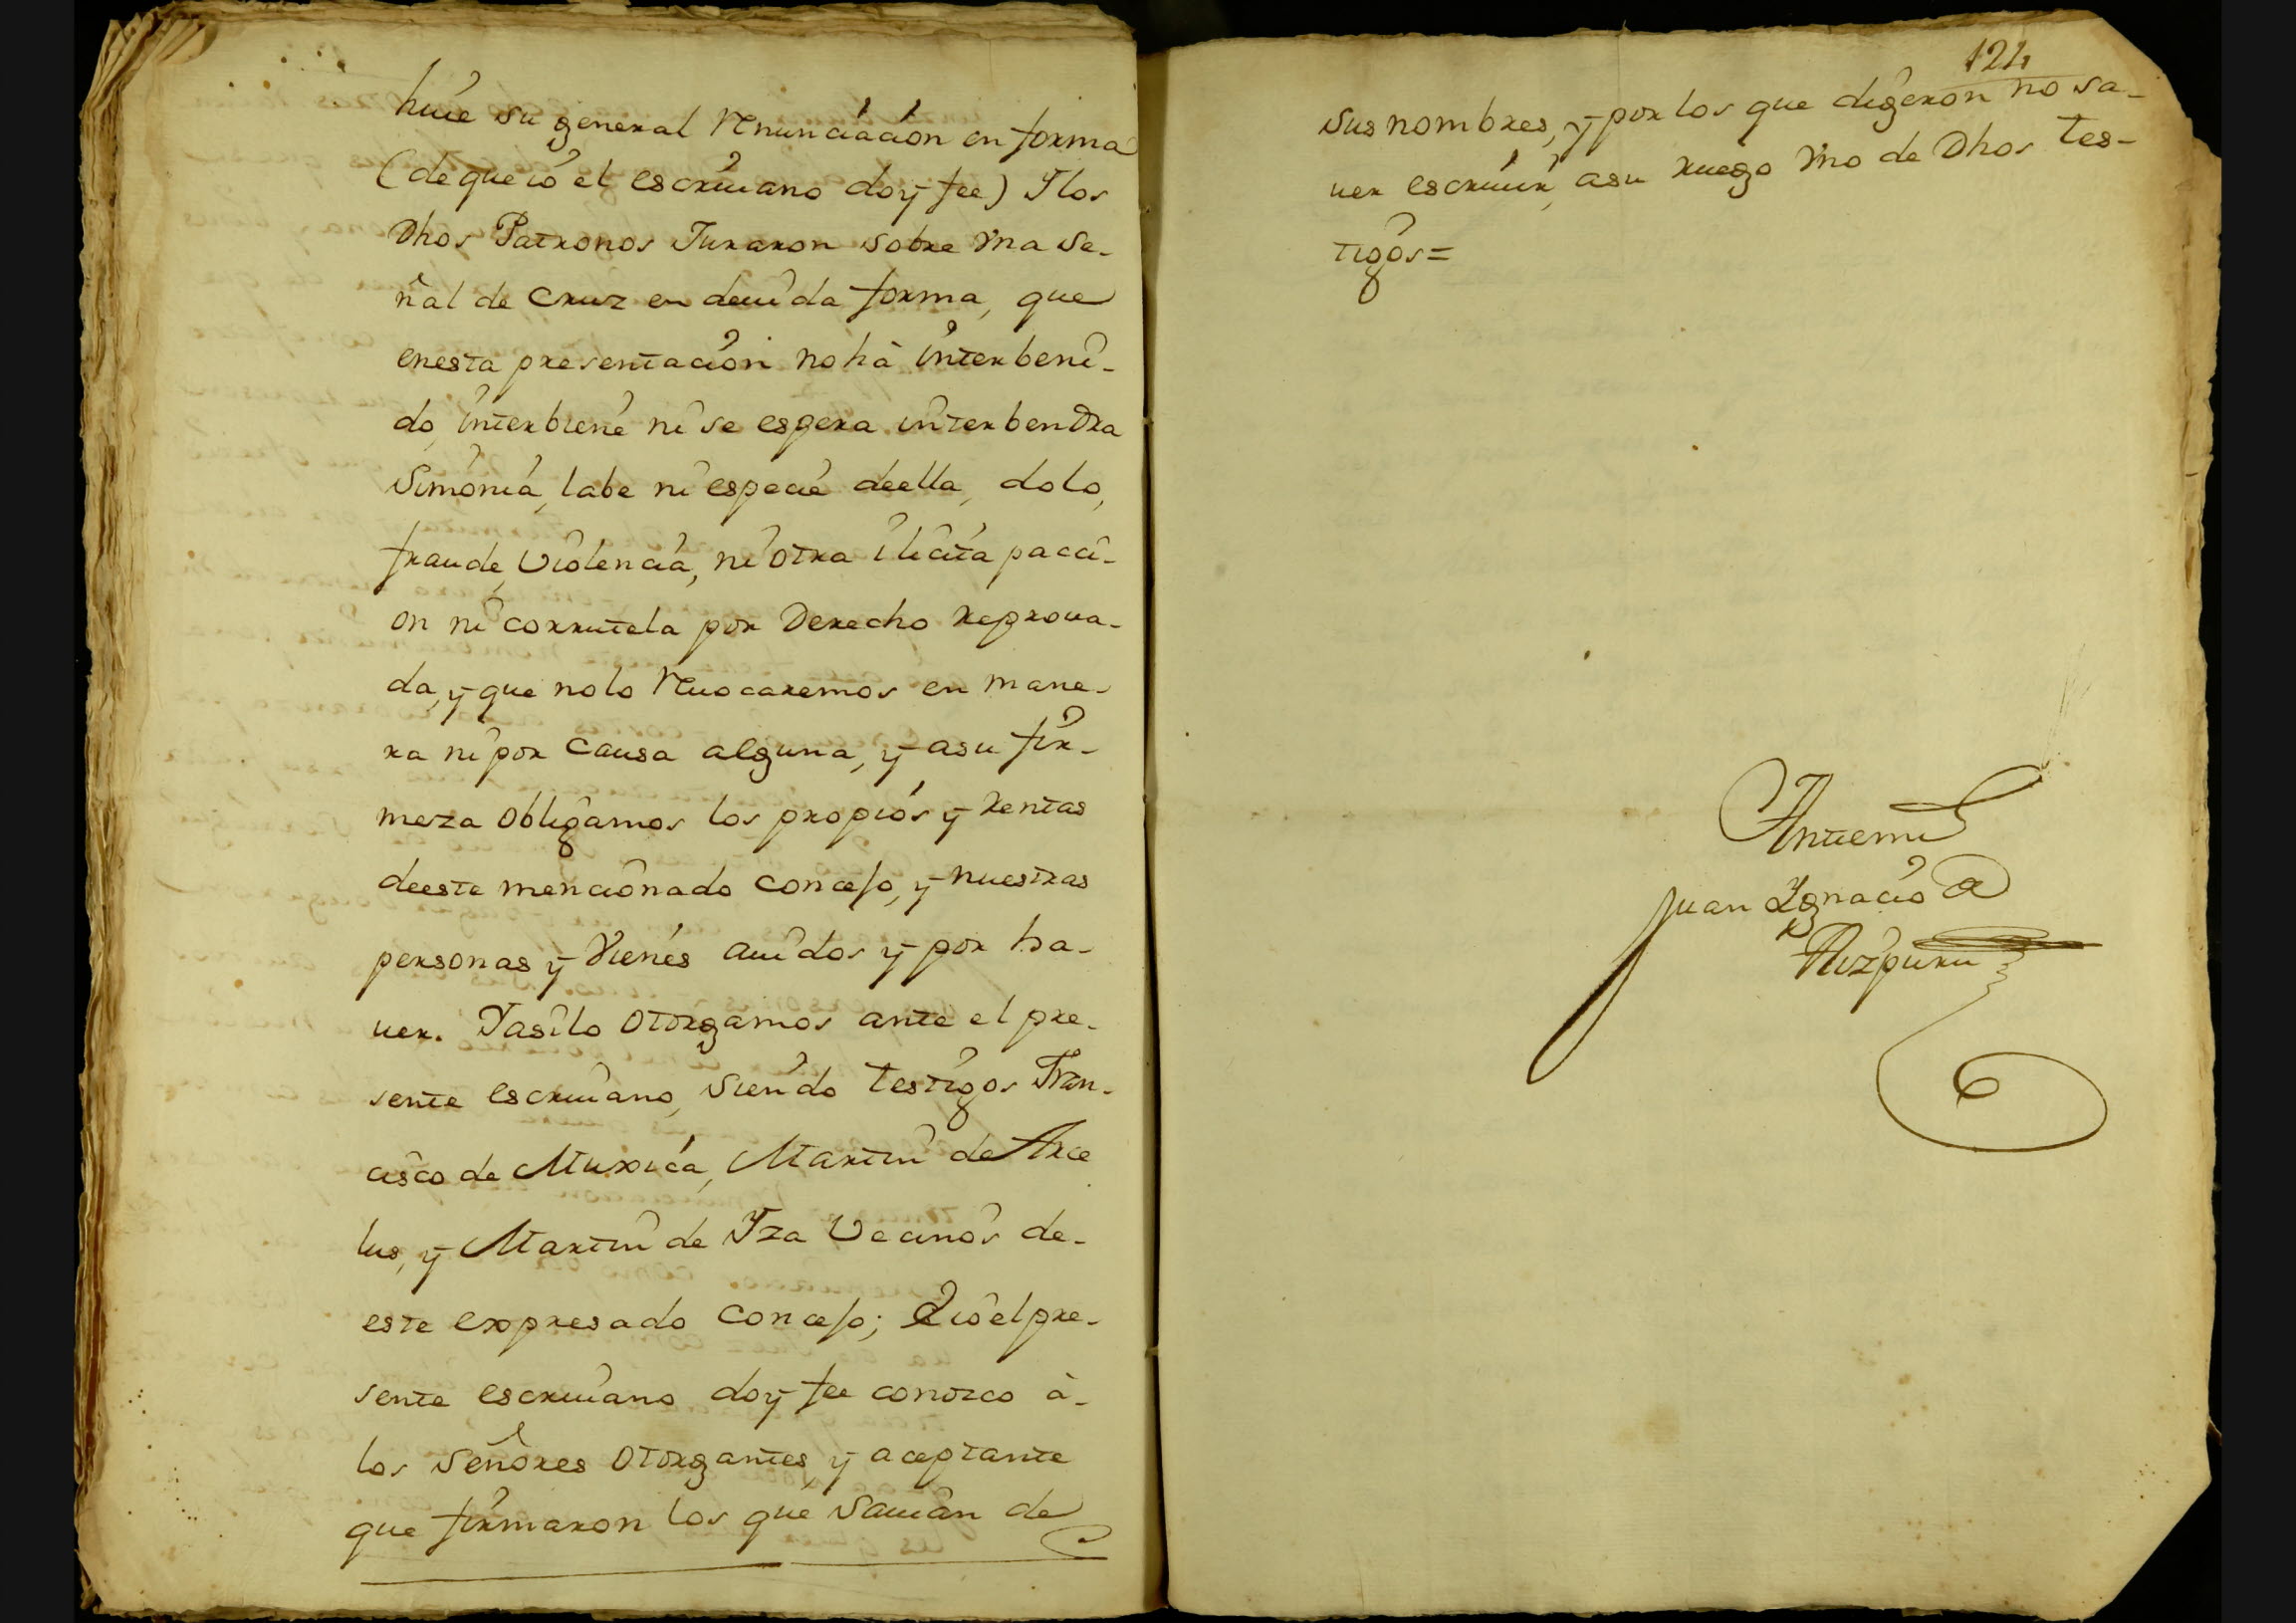 hiúe su general Renunciación en forma
(de que ió el escriuano doy fee) Ylos
Dhos Patronos Juraron sobre vna Se-
ñal de Cruz en deuida forma, que
enesta presentación no hà interbeni-
do, interbiené ni se espera interbendra
Simonia, labe ni especié deella, dolo,
fraude, Violencia, ni otra ilicita pacci-
on ni corrutela por Derecho reproua-
da, y que nolo Reuocaremos en mane-
ra ni por Causa alguna, y asu fir-
meza obligamos los propiós y rentas
deeste mencionado concejo, y nuestras
personas y Vienés auidos y por ha-
uer. Yasilo otorgamos ante el pre-
sente escriuano, siendo testigos Fran-
cisco de Muxica, Martin de Arce
lus, y Martin de Yza Vecinos de-
este expresado concejo; Eió el pre-
sente escriuano doy fee conozco à-
los Señores otorgantes, y aceptante
que firmaron los que sauian de
124
sus nombres, y por los que digeron no sa-
uer escriuir, asu ruego vno de Dhos tes-
tigos=
Antemi
Juan Ygnacio de
Aizpuru